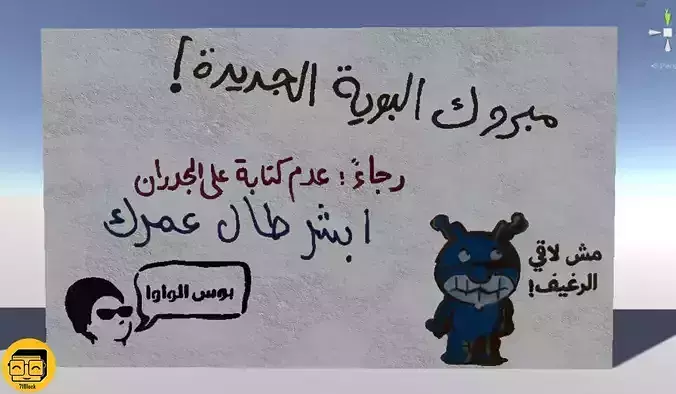 مبروك البوية الجديدة!
رجاءً: عدم كتابة على الجدران
ابشر طال عمرك
مش لاقي
الرغيف!
بوس الواوا
71Block